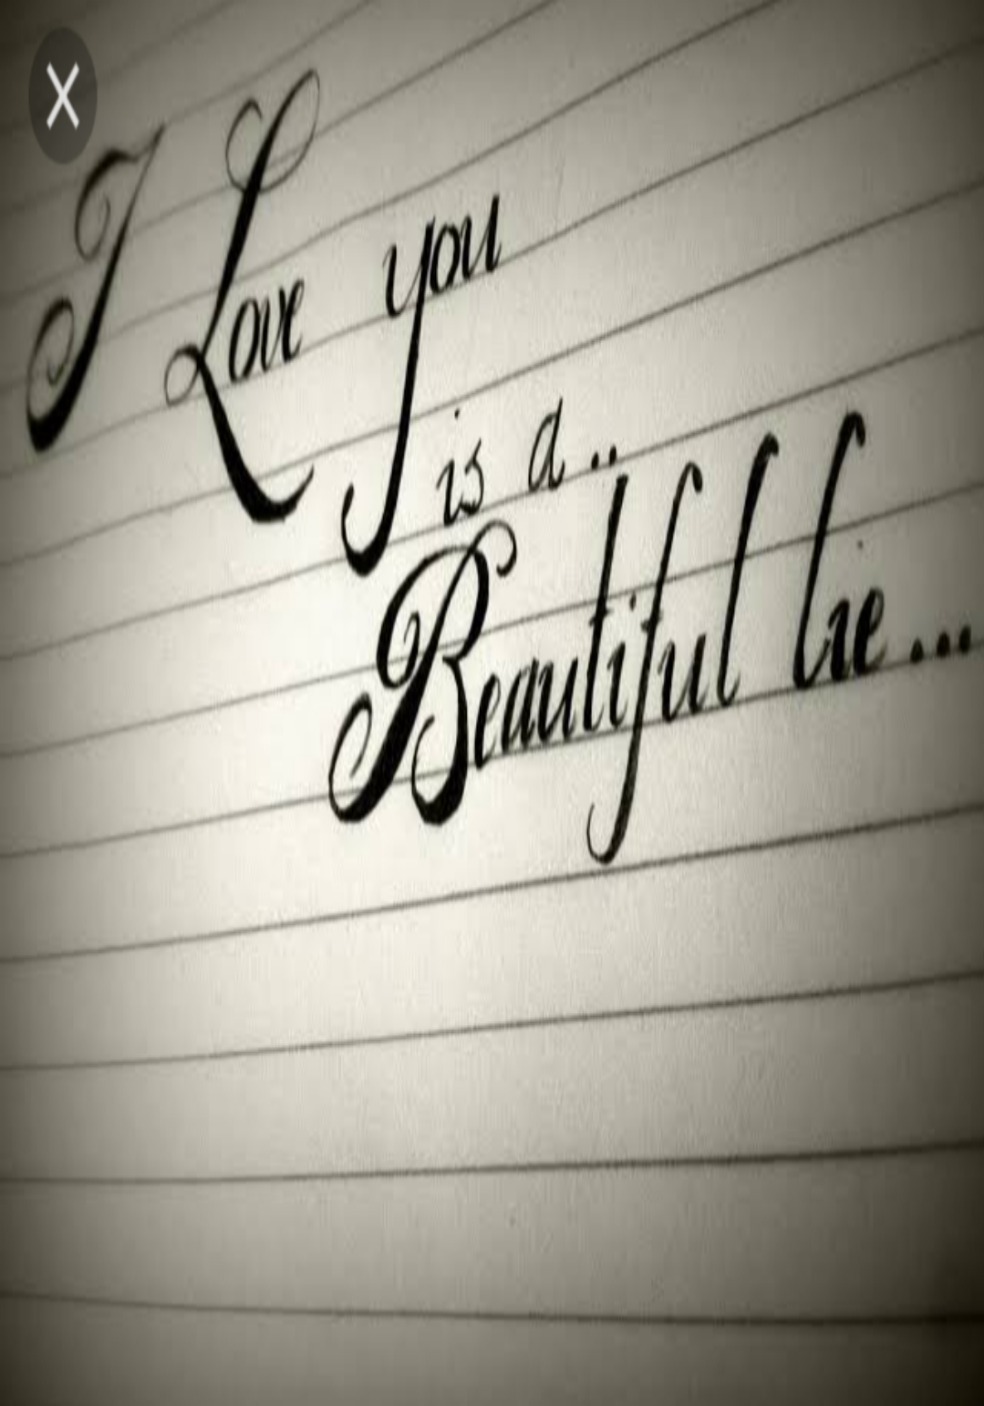 X
I Love you
is a..
Beautiful lie...